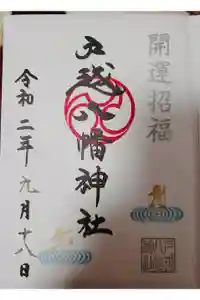 開運招福
戸越八幡神社
令和二年九月十八日